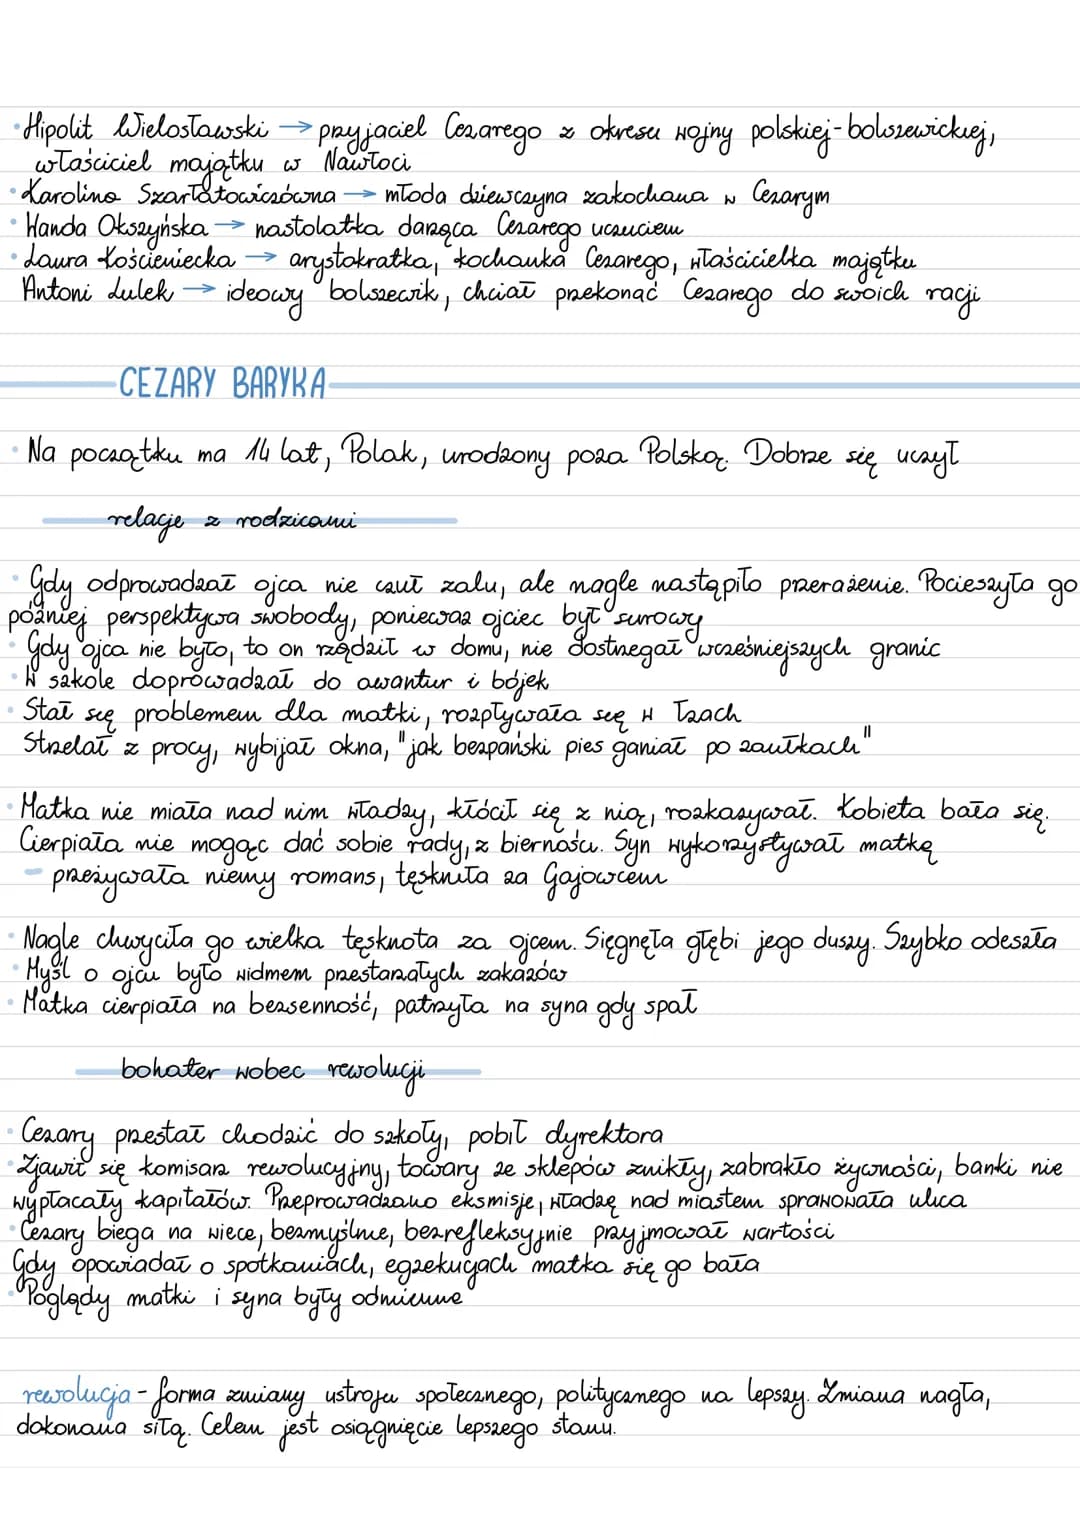 • Hipolit Wielosławski → przyjaciel Cezarego z okresu wojny polskiej-bolszewickiej,
właściciel majątku w Nawłoci
• Karolina Szarłatowiczówna → młoda dziewczyna zakochana w Cezarym
• Wanda Okszyńska → nastolatka darząca Cezarego uczuciem
• Laura Kościeniecka → arystokratka, kochanka Cezarego, właścicielka majątku
Antoni Lulek → ideowy bolszewik, chciał przekonać Cezarego do swoich racji
CEZARY BARYKA
• Na początku ma 14 lat, Polak, urodzony poza Polską. Dobrze się uczył
relacje z rodzicami
• Gdy odprowadzał ojca nie czuł żalu, ale nagle nastąpiło przerażenie. Pocieszyła go
później perspektywa swobody, ponieważ ojciec był surowy
• Gdy ojca nie było, to on rządził w domu, nie dostrzegał wcześniejszych granic
• W szkole doprowadzał do awantur i bójek
• Stał się problemem dla matki, rozpływała się w łzach
Strzelał z procy, wybijał okna, "jak bezpański pies ganiał po zaułkach"
• Matka nie miała nad nim władzy, kłócił się z nią, rozkazywał. Kobieta bała się.
Cierpiała nie mogąc dać sobie rady, z bierności. Syn wykorzystywał matkę
- przeżywała niemy romans, tęskniła za Gajowcem
• Nagle chwyciła go wielka tęsknota za ojcem. Sięgnęła głębi jego duszy. Szybko odeszła
• Myśl o ojcu było widmem przestarzałych zakazów
• Matka cierpiała na bezsenność, patrzyła na syna gdy spał
bohater wobec rewolucji
• Cezary przestał chodzić do szkoły, pobił dyrektora
• Zjawił się komisarz rewolucyjny, towary ze sklepów znikły, zabrakło żywności, banki nie
wypłacały kapitałów. Przeprowadzano eksmisje, władzę nad miastem sprawowała ulica
• Cezary biega na wiece, bezmyślnie, bezrefleksyjnie przyjmował wartości
Gdy opowiadał o spotkaniach, egzekucjach matka się go bała
• Poglądy matki i syna były odmienne
rewolucja - forma zmiany ustroju społecznego, politycznego na lepszy. Zmiana nagła,
dokonana siłą. Celem jest osiągnięcie lepszego stanu.